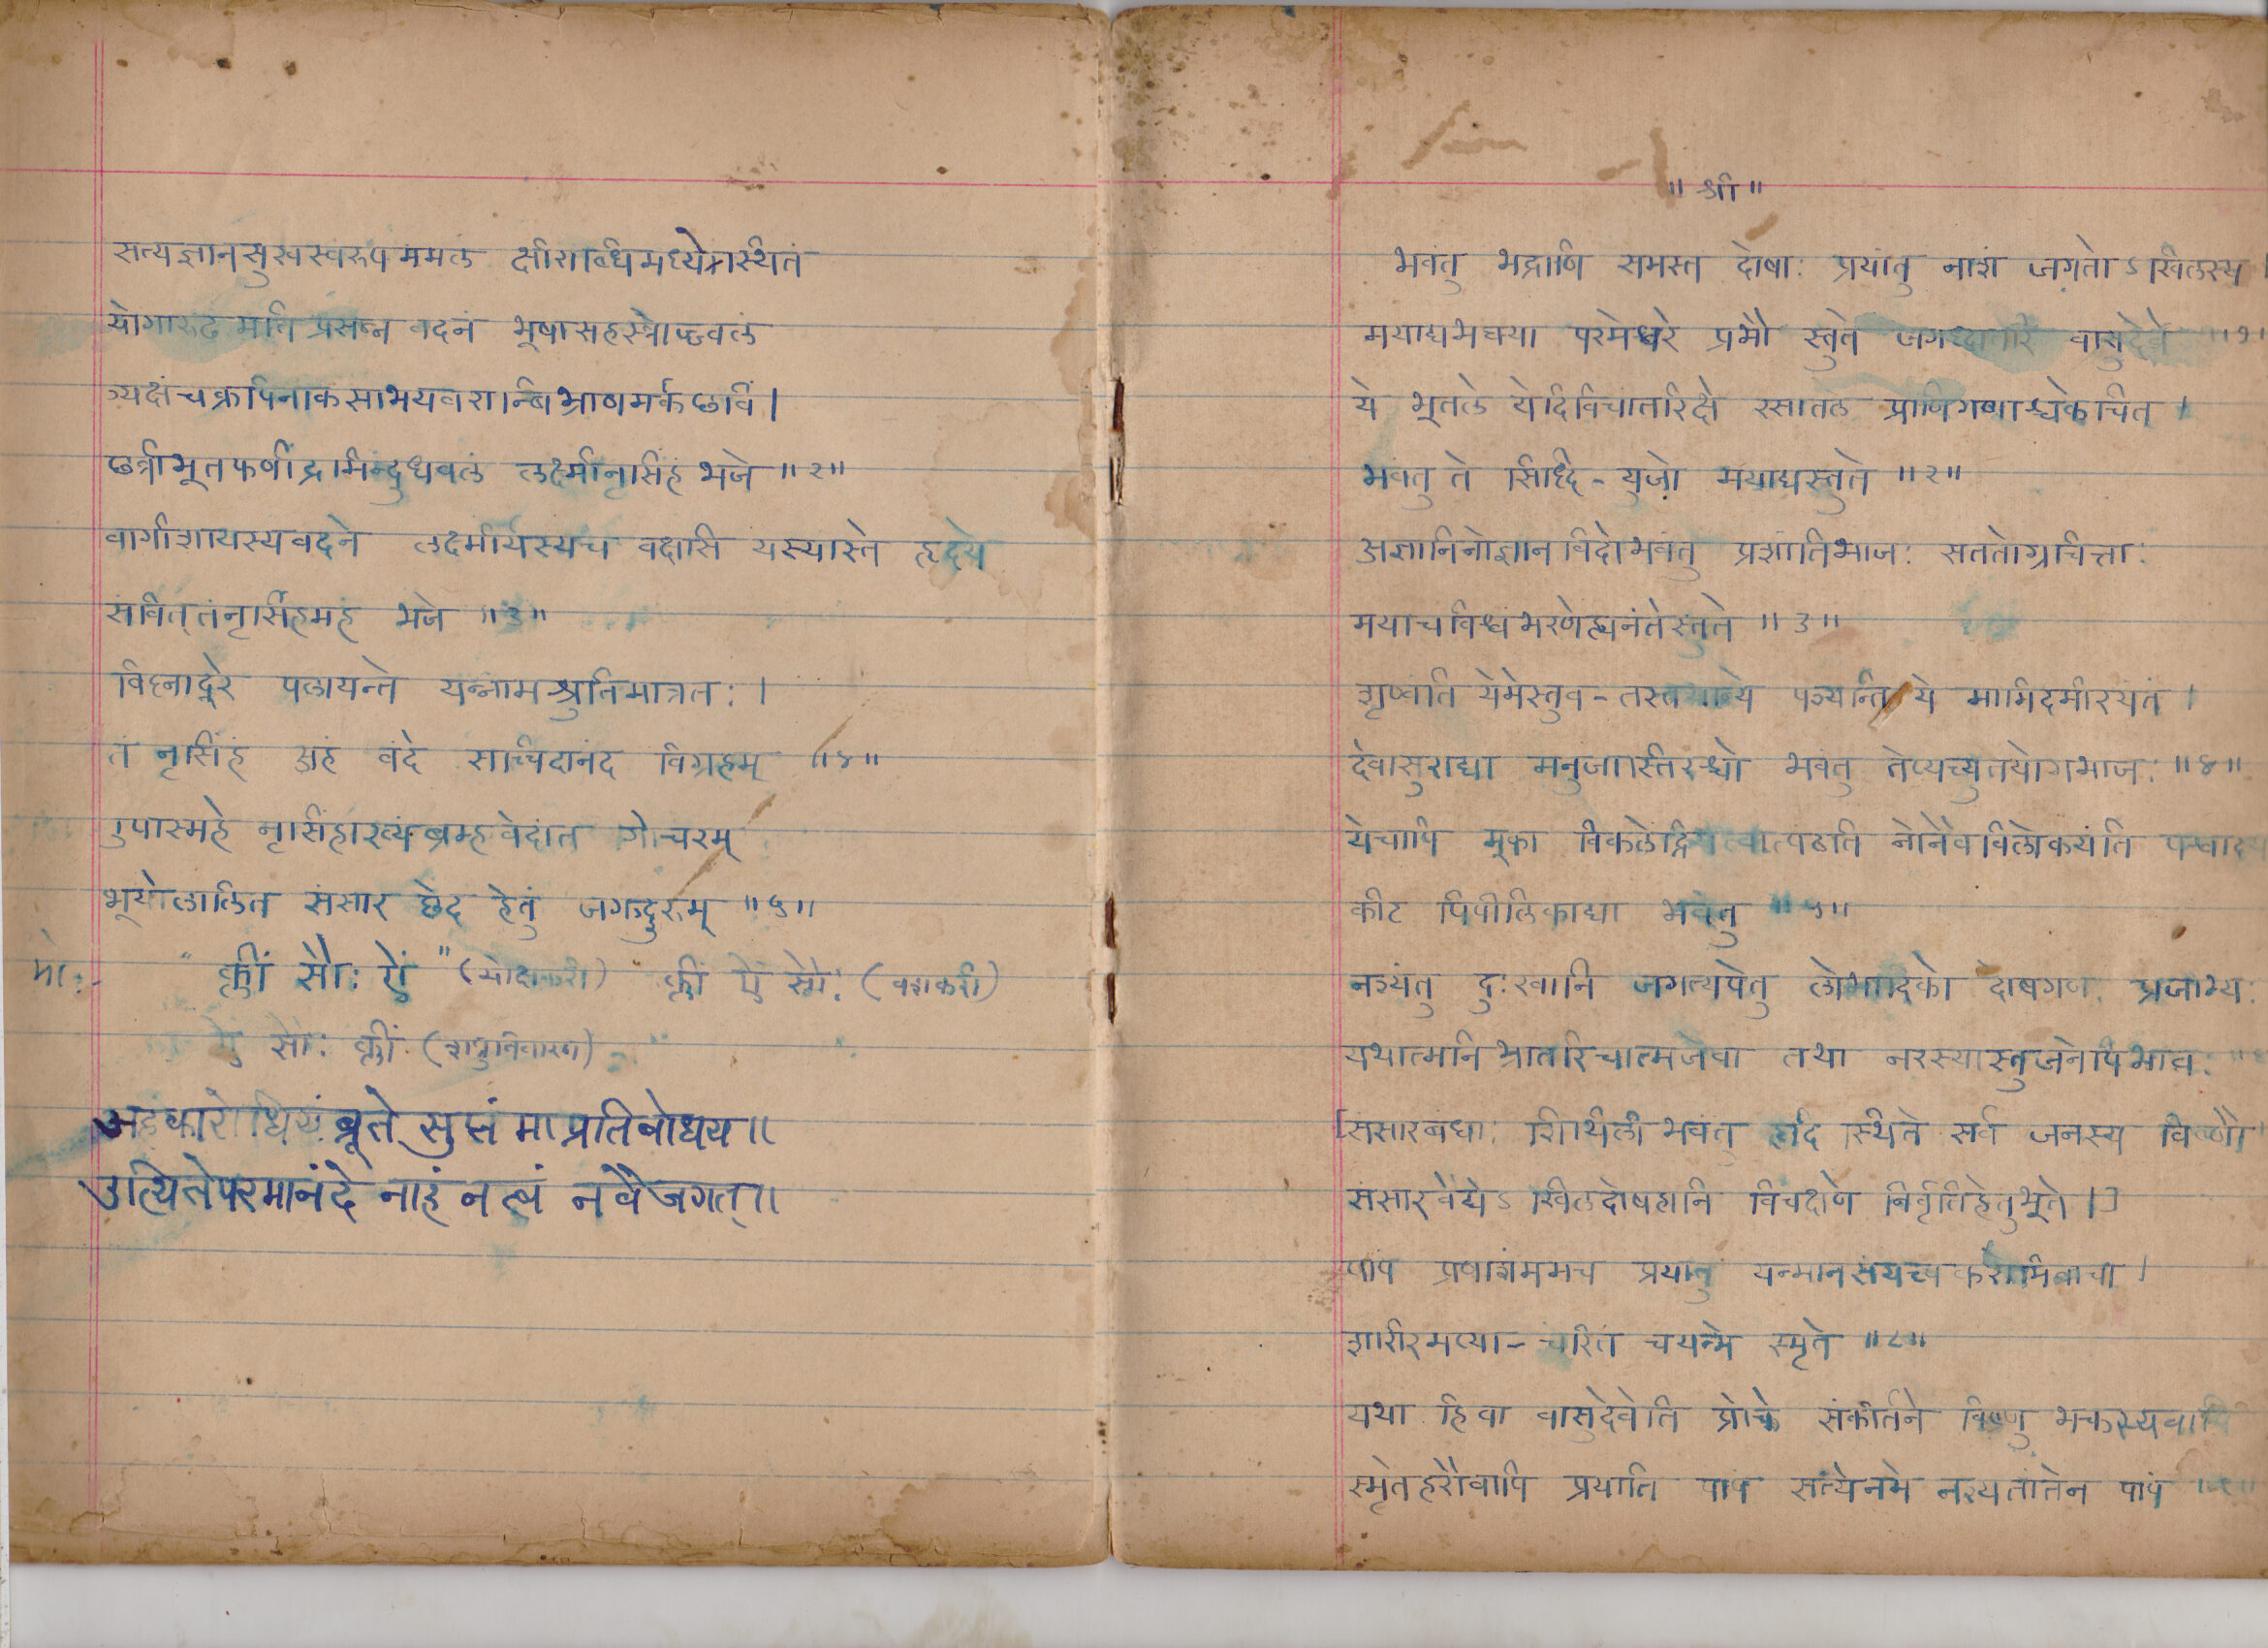 सत्यज्ञानसुखस्वरुपममलं क्षीराब्धिमध्येस्थितं
योगारुढमति प्रसन्न वदनं भूषासहस्त्रोज्वलं
त्र्यक्षंचक्रपिनाकसाभयवरान्बिभ्राणमर्कछविं।
छत्रीभूतफणींद्रमिन्दुधवलं लक्ष्मीनृसिंहं भजे ॥२॥
वागीशायस्यवदने लक्ष्मीर्यस्यच वक्षसि यस्यास्ते हृदये
संवित्तंनृसिंहमहं भजे ॥३॥
विघ्नादूरे पलायन्ते यन्नामश्रुतिमात्रतः।
तं नृसिंहं अहं वंदे सच्चिदानंद विग्रहम् ॥४॥
उपास्महे नृसिंहाख्यंब्रम्हवेदांत गोचरम्
भूयोलालित संसार छेद हेतुं जगद्गुरुम् ॥५॥
" क्लीं सौः ऐं " क्लीं ऐं सौः (वशकरी)
सौः क्लीं (शत्रुनिवारण)
अहंकारोधियंब्रूते सुप्तं माप्रतिबोधय॥
उत्थितेपरमानंदे नाहं न त्वं न वैजगत्॥
॥ श्री ॥
भवंतु भद्राणि समस्त दोषाः प्रयांतु नाशं जगतोऽखिलस्य।
मयाद्यभक्त्या परमेश्वरे प्रभौ स्तुते जगध्दातरि वासुदेवे ॥१॥
ये भूतले येदिविचांतरिक्षे रसातले प्राणिगणाश्चकेचित।
भवंतु ते सिध्दि-युजो मयाद्यस्तुते ॥२॥
अज्ञानिनोज्ञान विदोभवंतु प्रशांतिभाजः सततोग्रचित्ताः
मयाचविश्वंभरणेह्यनंतेस्तुते ॥३॥
शृण्वंति येमेस्तुव-तस्तथान्ये पश्यन्ति ये मामिदमीरयंतं।
देवासुराद्या मनुजास्तिरश्चो भवंतु तेप्यच्युतयोगभाजः ॥४॥
येचापि मूका विकलेंद्रियत्वात्पठंति नोनैवविलोकयंति
कीट पिपीलिकाद्या भवंतु ॥५॥
नश्यंतु दुःखानि जगत्यपेतु लोभादिको दोषगण प्रजाभ्यः
यथात्मनि भ्रातरिचात्मजेवा तथा नरस्यास्तुजनेपिभावः
[संसारबंधाः शिथिली भवंतु हृदि स्थिते सर्व जनस्य विष्णौ
संसारवैद्येऽखिलदोषहानि विचक्षणे निर्वृतिहेतुभूते।]
पापं प्रणाशंममच प्रयातु यन्मानसंयच्च करोमिवाचा।
शारीरमप्या-चरितं चयन्मे स्मृते ॥८॥
यथा हि वा वासुदेवेति प्रोक्ते संकीर्तने विष्णु भक्तस्यवापि
स्मृतेहरौवापि प्रयाति पापं सत्येनमे नश्यतांतेन पापं